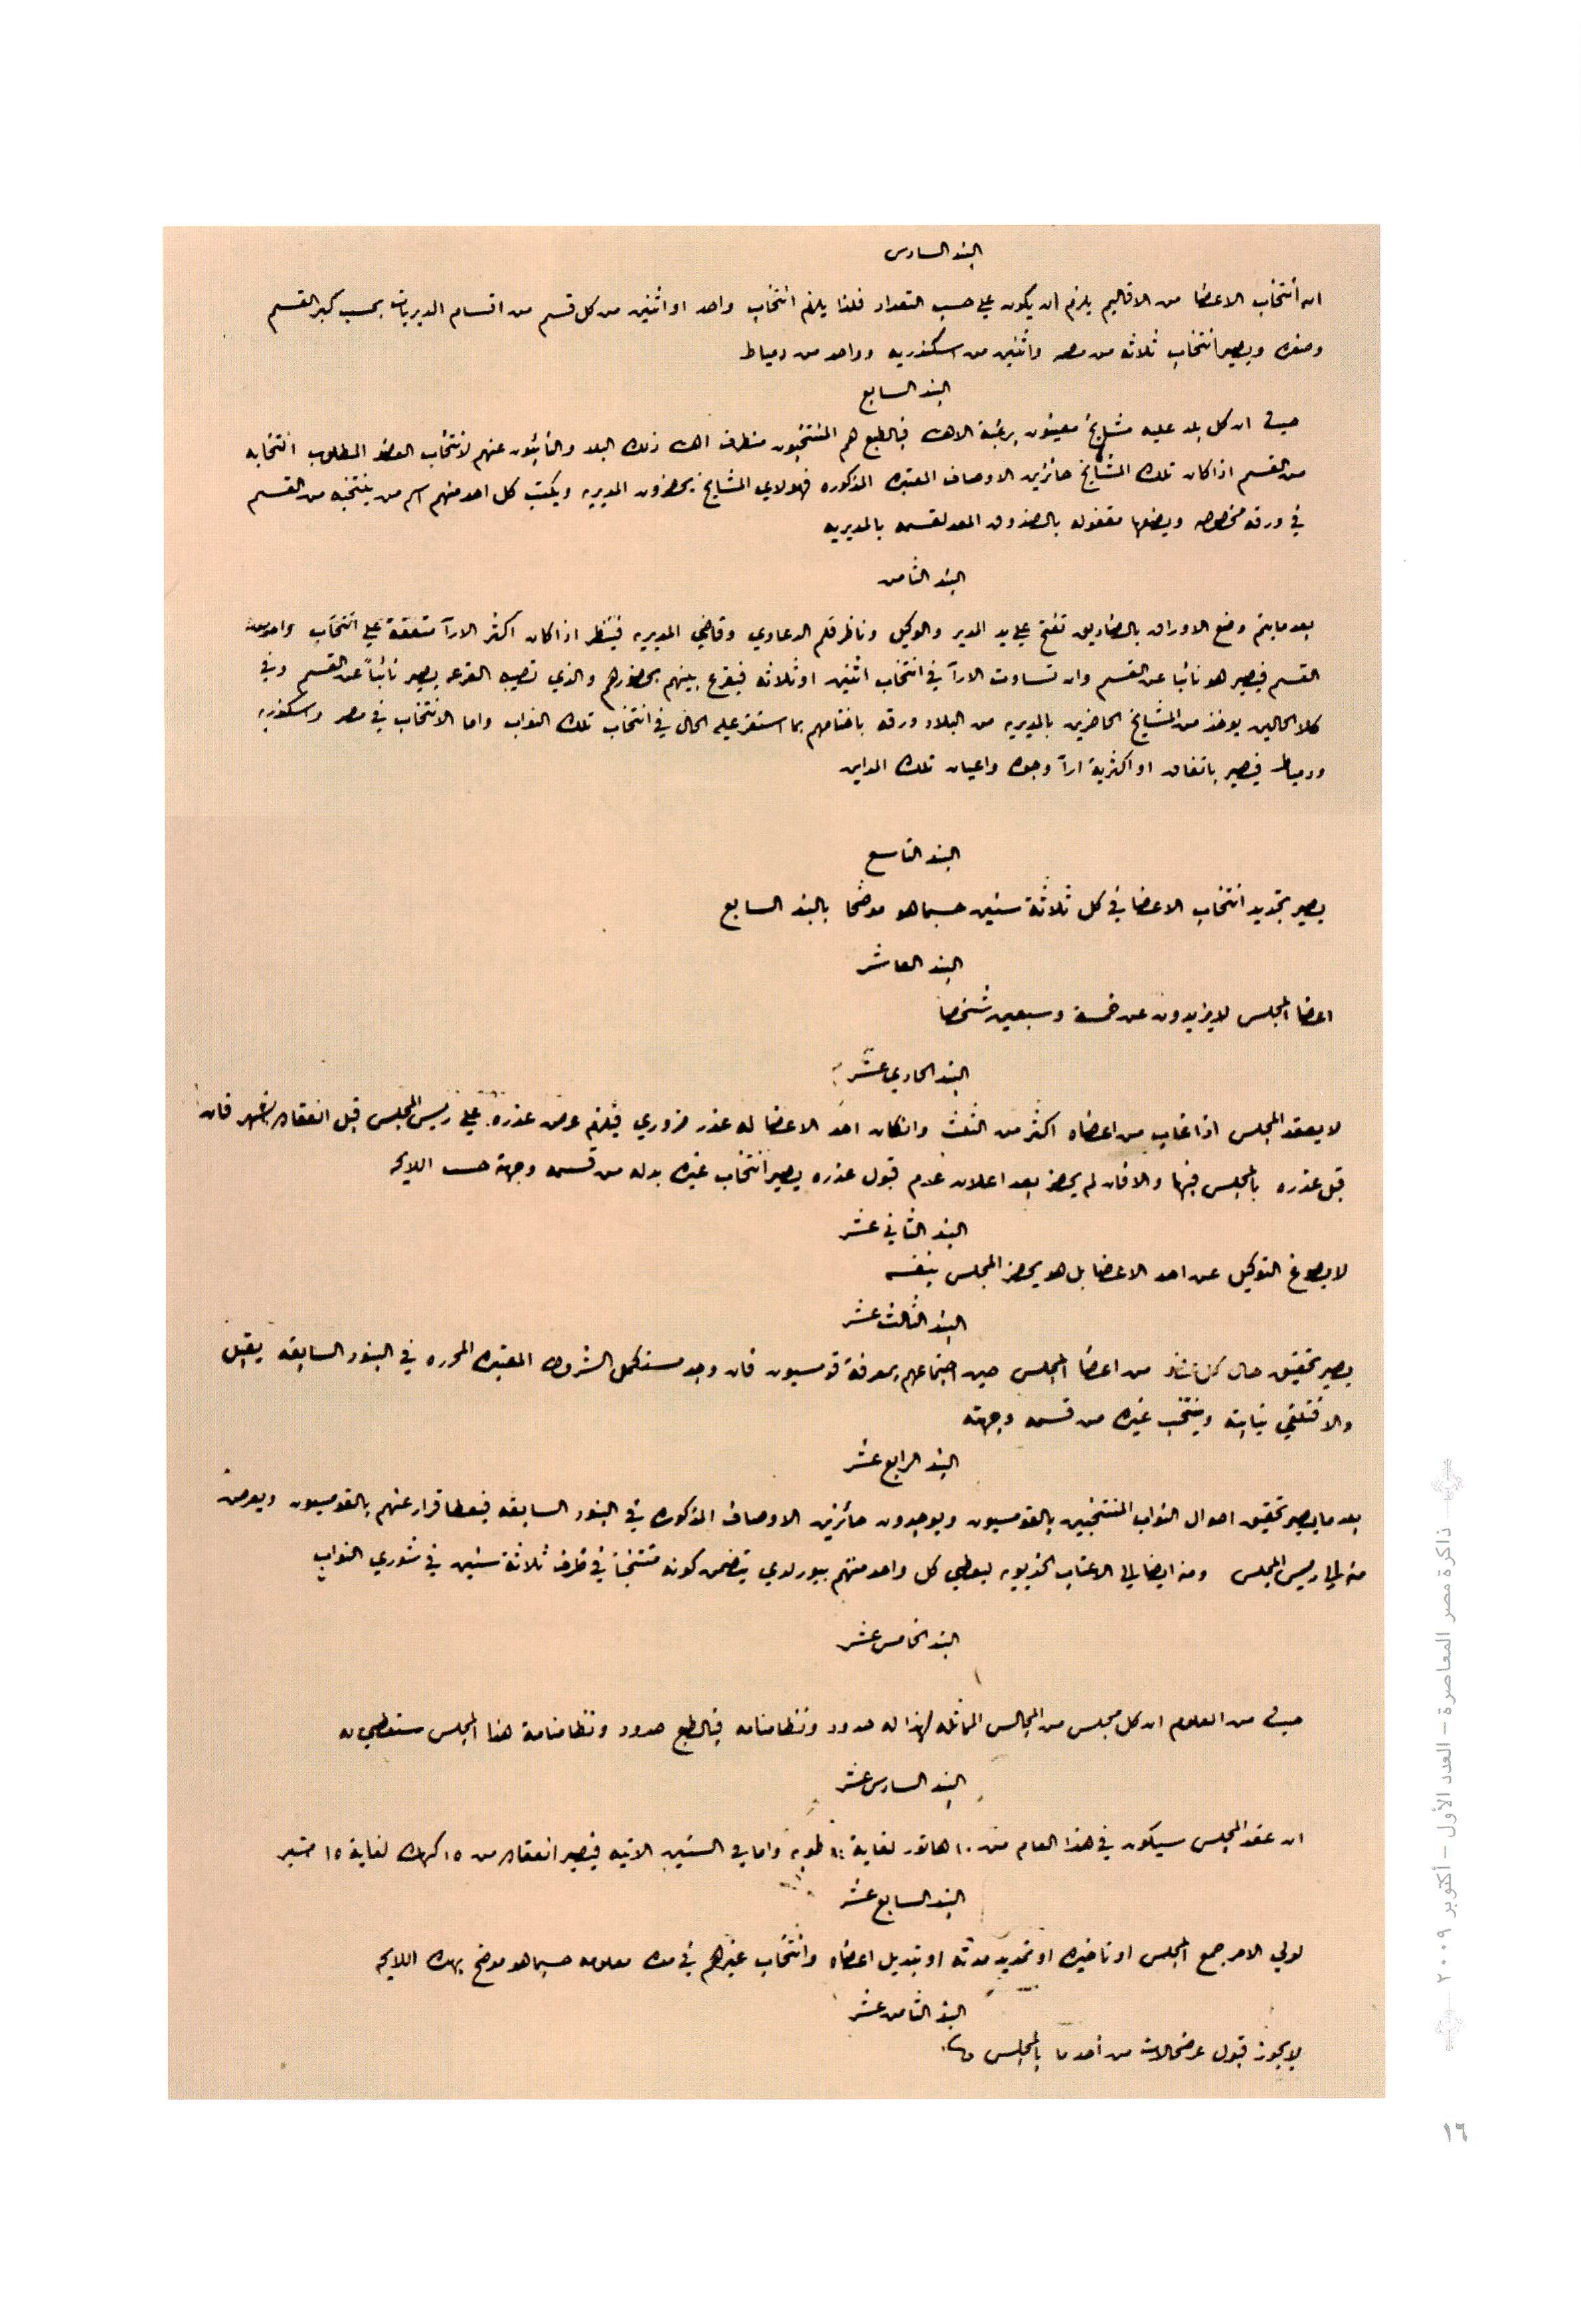 البند السادس
ان أنتخاب الاعضا من الاقاليم يلزم ان يكون على حسب التعداد فلذا يلزم انتخاب واحد او اثنين من كل قسم من اقسام المديريات بحسب كبر القسم
وصغره ويصير انتخاب ثلاثه من مصر واثنين من اسكندريه وواحد من دمياط
البند السابع
حيث ان كل بلد عليه مشايخ معينون برغبة الاهالى فبالطبع هم المنتخبون من طرف اهالى ذلك البلد والنائبون عنهم لانتخاب العضو المطلوب انتخابه
من القسم اذا كان تلك المشايخ حائزين الاوصاف المعتبره المذكوره فهولاى المشايخ يحضرون المديريه ويكتب كل احد منهم اسم من ينتخبه من القسم
في ورقه مخصوصه ويضعها مقفوله بالصندوق المعد لقسمه بالمديريه
البند الثامن
بعد ما يتم وضع الاوراق بالصناديق تفتح على يد المدير والوكيل وناظر قلم الدعاوي وقاضي المديريه فينظر اذا كان اكثر الارآ متفقة علي انتخاب واحد من
القسم فيصير هو نائبا عن القسم وان تساوت الارآ في انتخاب اثنين او ثلاثه فيقرع بينهم بحضورهم والذي تصيبه القرعه يصير نائباً عن القسم وفي
كلا الحالين يوخذ من المشايخ الحاضرين بالمديريه من البلاد ورقه باختامهم بما استقر عليه الحال في انتخاب تلك النواب واما الانتخاب في مصر واسكندريه
ودمياط فيصير باتفاق او اكثرية ارآ وجوه واعيان تلك المداين
البند التاسع
يصير تجديد انتخاب الاعضا في كل ثلاثة سنين حسبما هو موضحا بالبند السابع
البند العاشر
اعضا المجلس لا يزيدون عن خمسة وسبعين شخصا
البند الحادي عشر
لا يعقد المجلس اذا غاب من اعضاه اكثر من الثلث وان كان احد الاعضا له عذر ضروري فيلزم عرض عذره علي رئيس المجلس قبل انعقاده بشهر فان
قبل عذره بالمجلس فبها والا فان لم يحضر بعد اعلان عدم قبول عذره يصير انتخاب غيره بدله من قسمه وجهته حسب اللايحه
البند الثاني عشر
لا يصوغ التوكيل عن احد الاعضا بل هو يحضر المجلس بنفسه
البند الثالث عشر
يصير تحقيق حال كل عضو من اعضا المجلس حين اجتماعهم بمعرفة قومسيون فان وجد مستكمل الشروط المعتبره المحرره في البنود السابقه يقبل
والا فتلغي نيابته وينتخب غيره من قسمه وجهته
البند الرابع عشر
بعد ما يصير تحقيق احوال النواب المنتخبين بالقومسيون ويوجدون حائزين الاوصاف المذكوره في البنود السابقه فيعطا قرار عنهم بالقومسيون ويعرض
منه الي رئيس المجلس ومنه ايضا الي الاعتاب الخديويه ليعطي كل واحد منهم بيورلدي يتضمن كونه منتخباً في ظرف ثلاثة سنين في شوري النواب
البند الخامس عشر
حيث من المعلوم ان كل مجلس من المجالس المماثله لهذا له حدود ونظامنامه فبالطبع حدود ونظامنامة هذا المجلس ستعطي له
البند السادس عشر
ان عقد المجلس سيكون في هذا العام من ١٠ هاتور لغاية ١٠ طوبه واما في السنين الاتيه فيصير انعقاده من ١٥ كيهك لغاية ١٥ امشير
البند السابع عشر
لولي الامر جمع المجلس او تاخيره او تحديد مدته او تبديل اعضاه وانتخاب غيرهم في مده معلومه حسبما هو موضح بهذه اللايحه
البند الثامن عشر
لا يجوز قبول عرضحالات من احد ما بالمجلس
ذاكرة مصر المعاصرة – العدد الأول – أكتوبر ٢٠٠٩
١٦